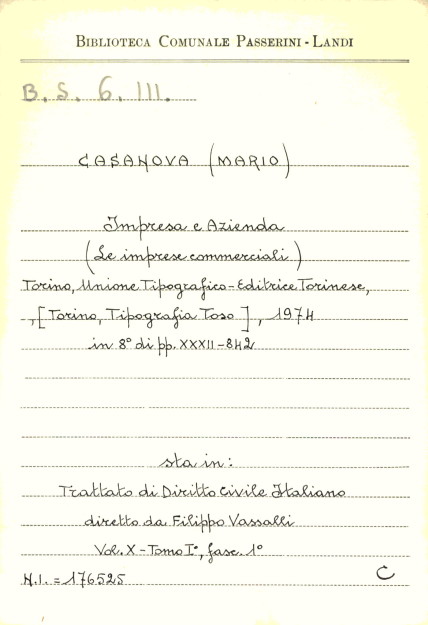 BIBLIOTECA COMUNALE PASSERINI - LANDI
B. S. 6. III.
CASANOVA (MARIO)
Impresa e Azienda
(Le imprese commerciali)
Torino, Unione Tipografico-Editrice Torinese,
, [Torino, Tipografia Toso], 1974
in 8° di pp. XXXII-842
sta in:
Trattato di Diritto Civile Italiano
diretto da Filippo Vassalli
Vol. X - Tomo I°, fasc. 1°
N.I. = 176525
C